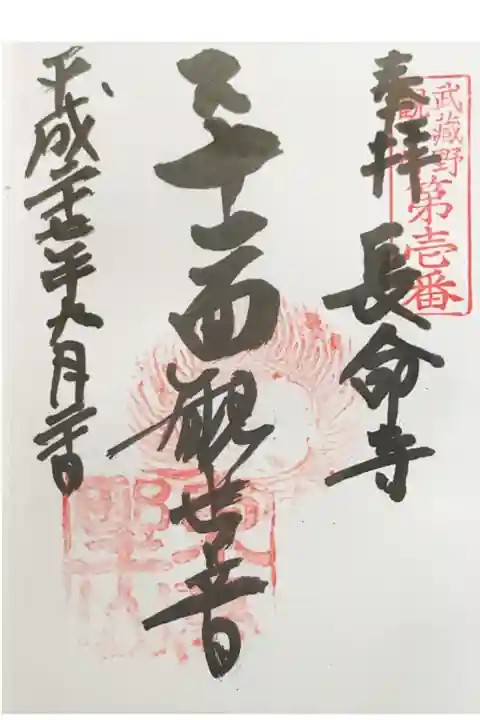 武蔵野
観
第壱番
奉拝 長命寺
十一面観世音
平成二十七年九月二十日